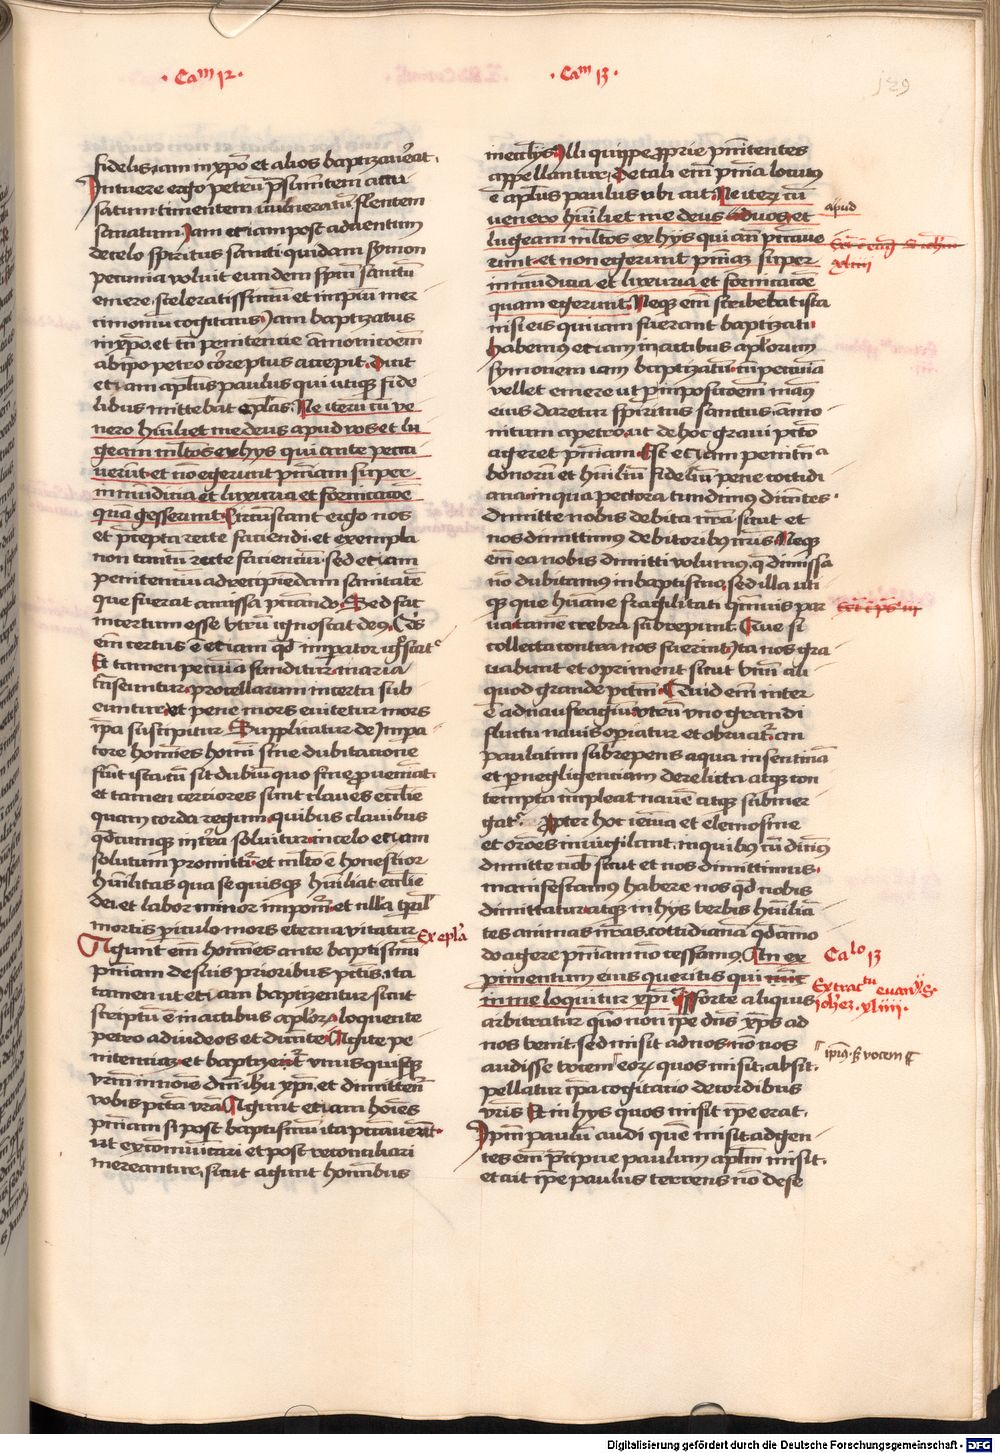 · Cam 12 ·
· Cam 13 ·
129
fidelis iam in xpo et alios baptizaverat.
Intuere ergo petru psumtem accu
satum timentem vulneratu flentem
sanatum Iam et iam post adventum
de celo spiritus sancti quidam symon
pecunia voluit eundem spm sanctu
emere sceleratissimu et impiu mer
cimoniu cogitans Iam baptizatus
in xpo et tn penitencie amonicoem
ab ipo petro correptus accepit. Dicit
etiam aplus paulus qui utiq fide
libus mittebat eplas. Ne iteru cu ve
nero humiliet me deus apud vos et lu
geam multos ex hys qui ante pecca
verunt et no egerunt pniam super
inmudicia et luxuria et fornicacoe
qua gesserunt Circustant ergo nos
et pcepta recte faciendi et exempla
non tantu recte facienciu sed etiam
penitenciu ad recipiedam sanitate
que fuerat amissa peccando. Sed fac
incertum esse utru ignoscat deus
em certus e etiam qd imperator
Et tamen pecunia funditur maria
transeuntur procellarum incerta sub
euntur et pene mors evitetur mors
ipa suscipitur Supplicatur de impa
tore homies homi sine dubitacione
fiunt ista cu sit dubiu quo fine perveniat.
et tamen cerciores sunt claves ecclie
quam corda regum quibus clavibus
qdcumque in terra solvitur in celo etiam
solutum promittit et multo e honestior
humilitas qua se quisq humiliat ecclie
dei et labor minor imponit et nulla tpral
mortis periculo mors eterna vitatur
Exepla
Agunt em homies ante baptismu
pniam de suis prioribus pctis ita
tamen ut etiam baptizentur sicut
scriptu e in actibus aplor loquente
petro ad iudeos et dicente Agite pe
nitencia et baptizet unusquisq
vrm in noie dni ihu xpi et dimittent
vobis pcta vra Agunt etiam hoies
pniam si post baptismu ita peccaverit
ut excomunicari et post reconciliari
mereantur sicut agunt in omnibus
Illi quippe proprie penitentes
appellantur De tali em pnia locutus
e aplus paulus ubi ait Ne iteru cu
venero humiliet me deus ad vos et
apud
lugeam multos ex hys qui ante peccave
runt et non egerunt pniam super
xliiii
inmudicia et luxuria et fornicacoe
quam egerunt Neque em scribebat ista
nisi eis qui iam fuerant baptizati.
Habemus etiam in actibus aplorum
symonem iam baptizatu cu pecunia
vellet emere ut p imposicoem manu
eius daretur spiritus sanctus amo
nitum a petro ut de hoc gravi pcto
ageret pniam Est etiam penitencia
bonoru et humiliu fidelium pene cottidi
ana in qua pectora tundimus dicentes.
Dimitte nobis debita nra sicut et
nos dimittimus debitoribus nris Neque
em ea nobis dimitti volumus q dimissa
no dubitamus in baptismo sed illa uti
que que humane fragilitati quamvis par
va tame crebra subrepunt Que si
collecta contra nos fuerint Ita nos gra
vabunt et opriment sicut unu ali
quod grande pctm Quid em inter
e ad naufragiu utru uno grandi
fluctu navis operiatur et obruat an
paulatim subrepens aqua in sentina
et p negligenciam derelicta atque con
tempta impleat nave atque submer
gat. Propter hoc ieiunia et elemosine
et oroes invigilant in quibus cu dicimus
dimitte nob sicut et nos dimittimus.
manifestamus habere nos qd nobis
dimittatur atque in hys verbis humilia
tes animas nras cottidiana qdamo
do agere pniam no cessamus An ex
Calo 13
pimentum eius queritis qui
in me loquitur xpi Forte aliquis
Extractu evangeli
Iohes. xliiii.
arbitratur quo non ipe dns xps ad
nos venit sed misit ad nos no nos
audisse vocem eor quos misit absit.
ipius vocem
pellatur ipa cogitacio de cordibus
vris Et in hys quos misit ipe erat.
Ipm paulu audi quem misit ad gen
tes em precipue paulum aplm misit.
et ait ipe paulus terrens no de se
Digitalisierung gefördert durch die Deutsche Forschungsgemeinschaft - DFG